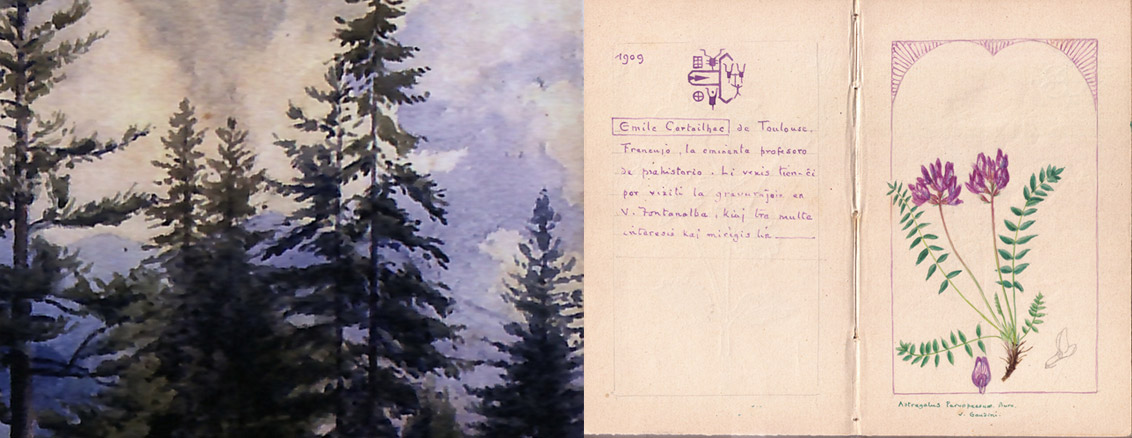 1909
Emile Cartailhac de Toulouse.
Francujo, la eminenta profesoro
de prahistorio. Li venis tien-ĉi
por viziti la gravurajoin en
V. Fontanalba, kiuj tre multe
interesis kaj mirigis lin
Astragalus
V. Gausini.